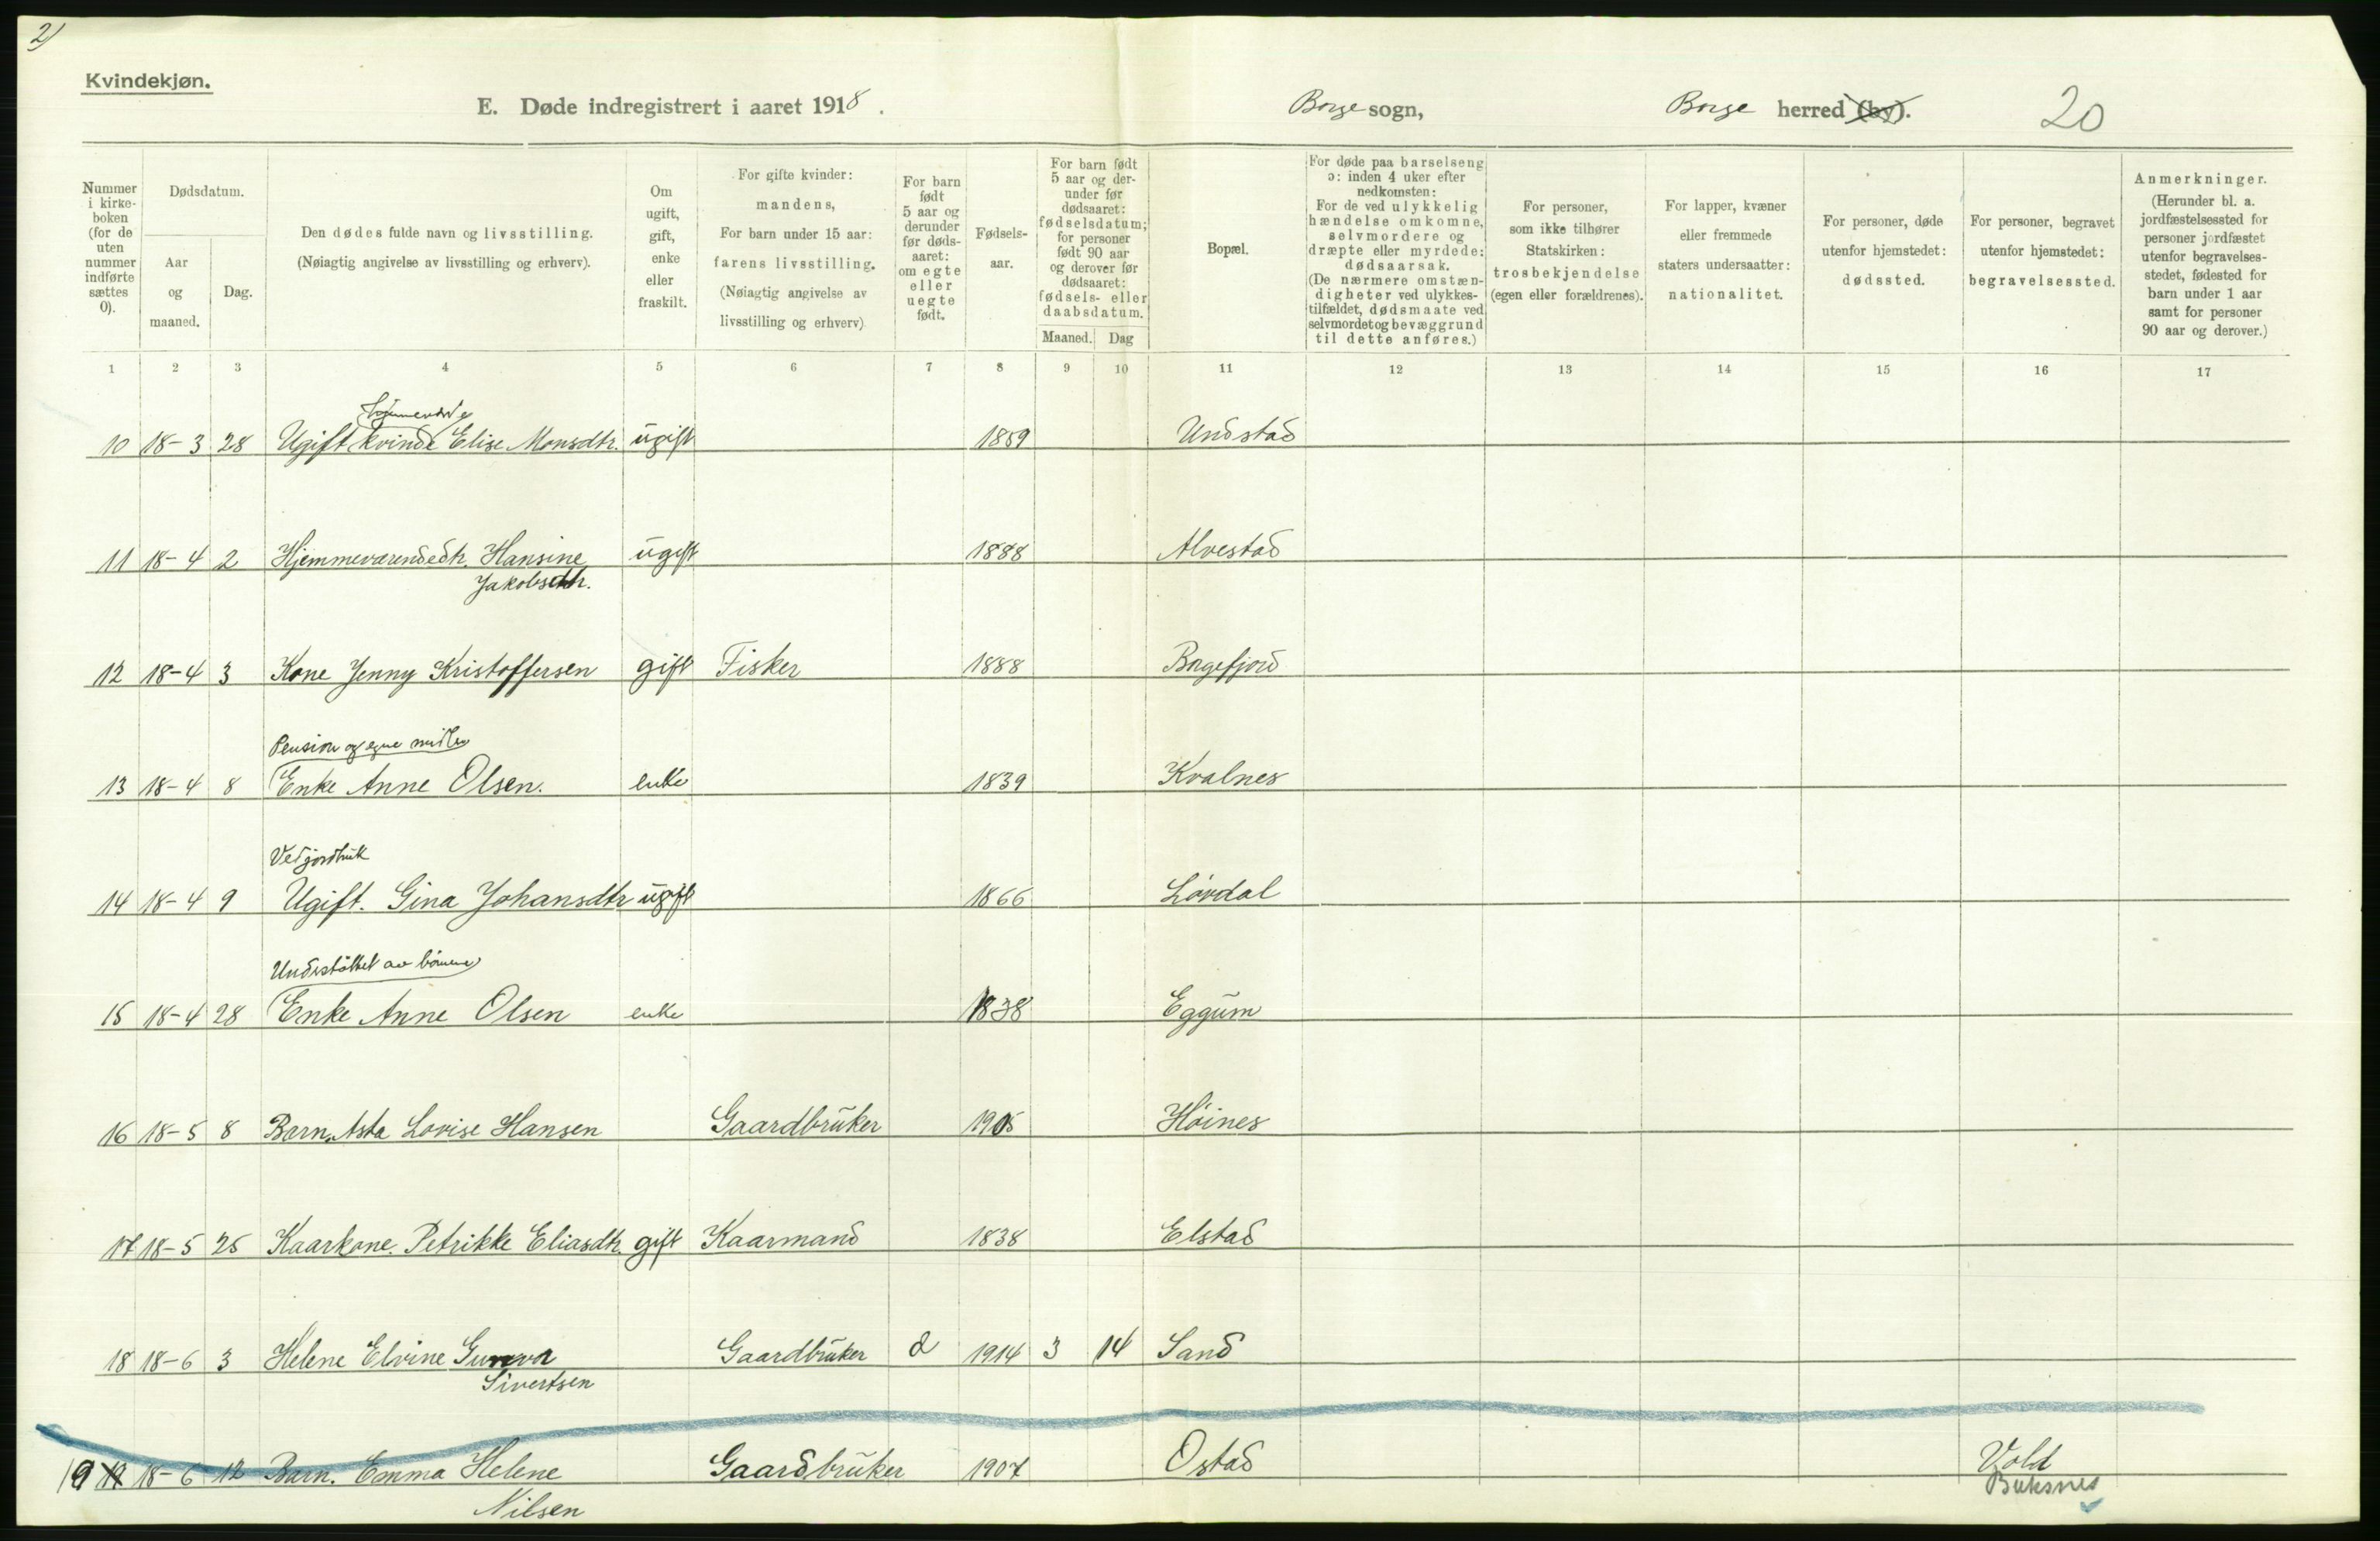 2)
Kvindekjøn.
E. Døde indregistrert i aaret 1918.
Borge sogn,
Borge herred (by).
20
Nummer i kirke-boken (for de uten nummer indførte sættes 0).
Dødsdatum.
Aar og maaned.
Dag.
Den dødes fulde navn og livsstilling.
(Nøiagtig angivelse av livsstilling og erhverv).
Om ugift, gift, enke eller fraskilt.
For gifte kvinder: mandens,
For barn under 15 aar: farens livsstilling.
(Nøiagtig angivelse av livsstilling og erhverv)
For barn født 5 aar og derunder før døds-aaret: om egte eller uegte født.
Fødsels-aar.
For barn født 5 aar og der-under før dødsaaret: fødselsdatum; for personer født 90 aar og derover før dødsaaret: fødsels- eller daabsdatum.
Maaned.
Dag
Bopæl.
For døde paa barselseng ɔ: inden 4 uker efter nedkomsten:
For de ved ulykkelig hændelse omkomne, selvmordere og dræpte eller myrdede: dødsaarsak.
(De nærmere omstæn-digheter ved ulykkes-tilfældet, dødsmaate ved selvmordet og bevæggrund til dette anføres.)
For personer, som ikke tilhører Statskirken: trosbekjendelse (egen eller forældrenes).
For lapper, kvæner eller fremmede staters undersaatter: nationalitet.
For personer, døde utenfor hjemstedet: dødssted.
For personer, begravet utenfor hjemstedet: begravelsessted.
Anmerkninger.
(Herunder bl. a. jordfæstelsessted for personer jordfæstet utenfor begravelses-stedet, fødested for barn under 1 aar samt for personer 90 aar og derover.)
1 2 3 4 5 6 7 8 9 10 11 12 13 14 15 16 17
10 18-3 28 Ugift kvinde Elise Monsdtr. ugift 1859 Undstad
11 18-4 2 Hjemmeværendedtr. Hansine ugift 1888 Alvestad
Jakobsdtr.
12 18-4 3 Kone Jenny Kristoffersen gift Fisker 1888 Borgefjord
Pension og egne midler
13 18-4 8 Enke Anne Olsen. enke 1839 Kvalnes
Ved jordbruk
14 18-4 9 Ugift. Gina Johansdtr ugift 1866 Lövdal
Understöttet av börnene
15 18-4 28 Enke Anne Olsen enke 1838 Eggum
16 18-5 8 Barn. Asta Lovise Hansen Gaardbruker 1905 Höines
17 18-5 25 Kaarkone. Petrikke Eliasdtr. gift Kaarmand 1838 Elstad
18 18-6 3 Helene Elvine Gunvor Gaardbruker 1914 3 14 Sand
Sivertsen
19 18-6 12 Barn. Emma Helene Gaardbruker 1907 Ostad Vold
Nilsen
Buksnes